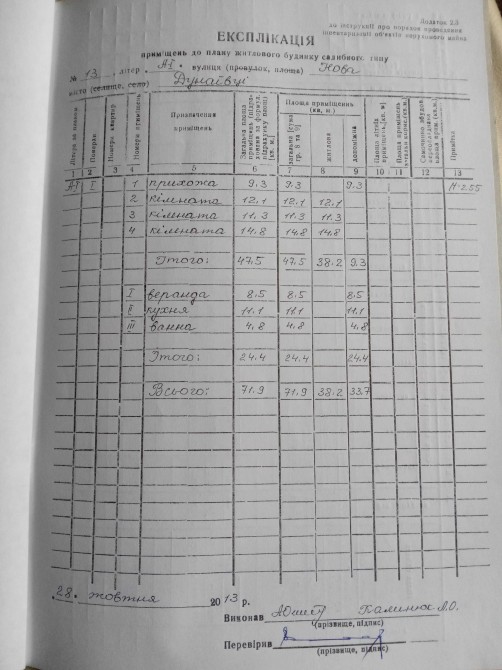 Додаток 2.3
до інструкції про порядок проведення
інвентаризації об'єктів нерухомого майна
ЕКСПЛІКАЦІЯ
приміщень до плану житлового будинку садибного типу
№ 13, літер А-І. вулиця (провулок, площа) Нова
місто (селище, село) Дунаївці
Літера за планом Поверхи Номери квартир Номери приміщень Призначення приміщень Загальна площа Площа приміщень (кв. м) Примітка
загальна (сума гр. 8 та 9) житлова допоміжна
1 2 3 4 5 6 7 8 9 10 11 12 13
А-І І 1 прихожа 9.3 9.3 9.3 Н-2.55
2 кімната 12.1 12.1 12.1
3 кімната 11.3 11.3 11.3
4 кімната 14.8 14.8 14.8
Ітого: 47.5 47.5 38.2 9.3
І веранда 8.5 8.5 8.5
ІІ кухня 11.1 11.1 11.1
ІІІ ванна 4.8 4.8 4.8
Ітого: 24.4 24.4 24.4
Всього: 71.9 71.9 38.2 33.7
28. жовтня 2013 р.
Виконав Калинюк Л.О.
(прізвище, підпис)
Перевірив
(прізвище, підпис)